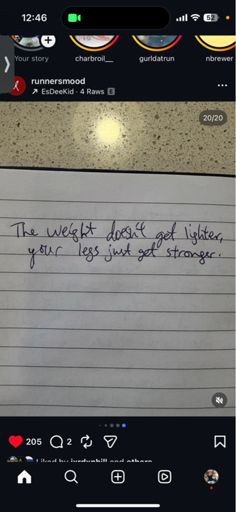 12:46
52
Your story
charbroil__
gurldatrun
nbrewer
runnersmood
EsDeeKid · 4 Raws E
20/20
The weight doesn't get lighter,
your legs just get stronger.
205
2